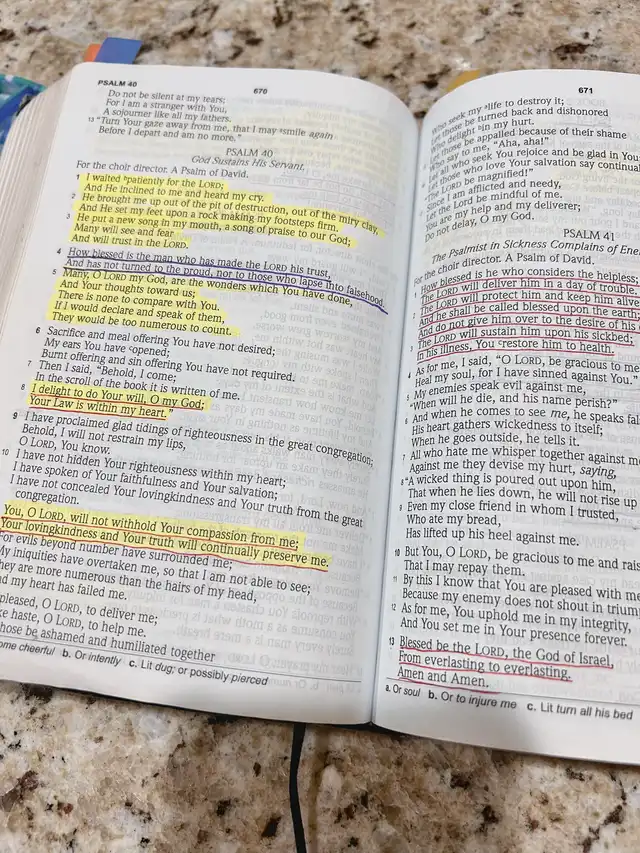 PSALM 40
670
Do not be silent at my tears;
For I am a stranger with You,
A sojourner like all my fathers.
13 "Turn Your gaze away from me, that I may ᵃsmile again
Before I depart and am no more."
PSALM 40
God Sustains His Servant.
For the choir director. A Psalm of David.
1 I waited ᵇpatiently for the LORD;
And He inclined to me and heard my cry.
2 He brought me up out of the pit of destruction, out of the miry clay,
And He set my feet upon a rock making my footsteps firm.
3 He put a new song in my mouth, a song of praise to our God;
Many will see and fear
And will trust in the LORD.
4 How blessed is the man who has made the LORD his trust,
And has not turned to the proud, nor to those who lapse into falsehood.
5 Many, O LORD my God, are the wonders which You have done,
And Your thoughts toward us;
There is none to compare with You.
If I would declare and speak of them,
They would be too numerous to count.
6 Sacrifice and meal offering You have not desired;
My ears You have ᶜopened;
Burnt offering and sin offering You have not required.
7 Then I said, "Behold, I come;
In the scroll of the book it is written of me.
8 I delight to do Your will, O my God;
Your Law is within my heart."
9 I have proclaimed glad tidings of righteousness in the great congregation;
Behold, I will not restrain my lips,
O LORD, You know.
10 I have not hidden Your righteousness within my heart;
I have spoken of Your faithfulness and Your salvation;
I have not concealed Your lovingkindness and Your truth from the great
congregation.
You, O LORD, will not withhold Your compassion from me;
Your lovingkindness and Your truth will continually preserve me.
For evils beyond number have surrounded me;
My iniquities have overtaken me, so that I am not able to see;
They are more numerous than the hairs of my head,
And my heart has failed me.
pleased, O LORD, to deliver me;
haste, O LORD, to help me.
those be ashamed and humiliated together
cheerful b. Or intently c. Lit dug; or possibly pierced
671
Who seek my ᵃlife to destroy it;
those be turned back and dishonored
Who delight ᵇin my hurt.
those be appalled because of their shame
Who say to me, "Aha, aha!"
Let all who seek You rejoice and be glad in You
Let those who love Your salvation say continual
"The LORD be magnified!"
Since I am afflicted and needy,
Let the Lord be mindful of me.
You are my help and my deliverer;
Do not delay, O my God.
PSALM 41
The Psalmist in Sickness Complains of Ene
For the choir director. A Psalm of David.
1 How blessed is he who considers the helpless;
The LORD will deliver him in a day of trouble.
2 The LORD will protect him and keep him alive
And he shall be called blessed upon the earth;
And do not give him over to the desire of his
3 The LORD will sustain him upon his sickbed;
In his illness, You ᶜrestore him to health.
4 As for me, I said, "O LORD, be gracious to me
Heal my soul, for I have sinned against You."
5 My enemies speak evil against me,
"When will he die, and his name perish?"
6 And when he comes to see me, he speaks fal
His heart gathers wickedness to itself;
When he goes outside, he tells it.
7 All who hate me whisper together against m
Against me they devise my hurt, saying,
8 "A wicked thing is poured out upon him,
That when he lies down, he will not rise up
9 Even my close friend in whom I trusted,
Who ate my bread,
Has lifted up his heel against me.
10 But You, O LORD, be gracious to me and rais
That I may repay them.
11 By this I know that You are pleased with me
Because my enemy does not shout in trium
12 As for me, You uphold me in my integrity,
And You set me in Your presence forever.
13 Blessed be the LORD, the God of Israel,
From everlasting to everlasting.
Amen and Amen.
a. Or soul b. Or to injure me c. Lit turn all his bed